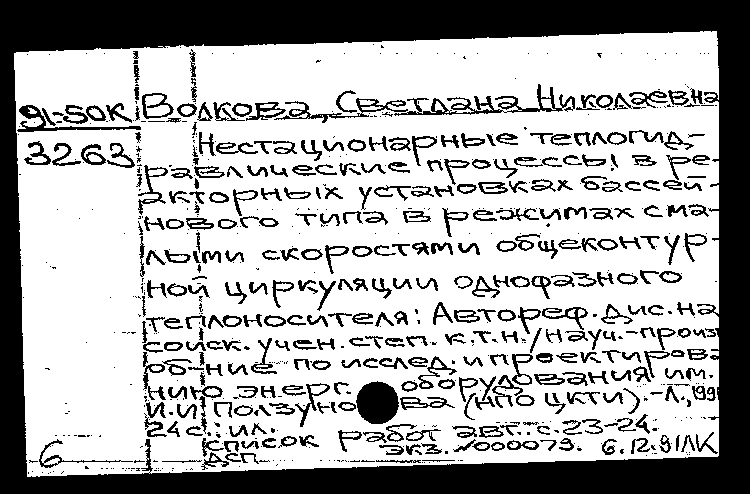 91-50К Волкова, Светлана Николаевна
3263 Нестационарные теплогид-
равлические процессы в ре-
акторных установках бассей-
нового типа в режимах с ма-
лыми скоростями общеконтур-
ной циркуляции однофазного
теплоносителя: Автореф. дис. на
соиск. учен. степ. к.т.н. / Науч.-произв
об-ние по исслед. и проектирова
нию энерг. оборудования им.
И.И Ползунова (НПО ЦКТИ). -Л., 199
24 с.: ил.
список работ авт.: с. 23-24.
ДСП экз. №000079. 6.12.91ЛК
6